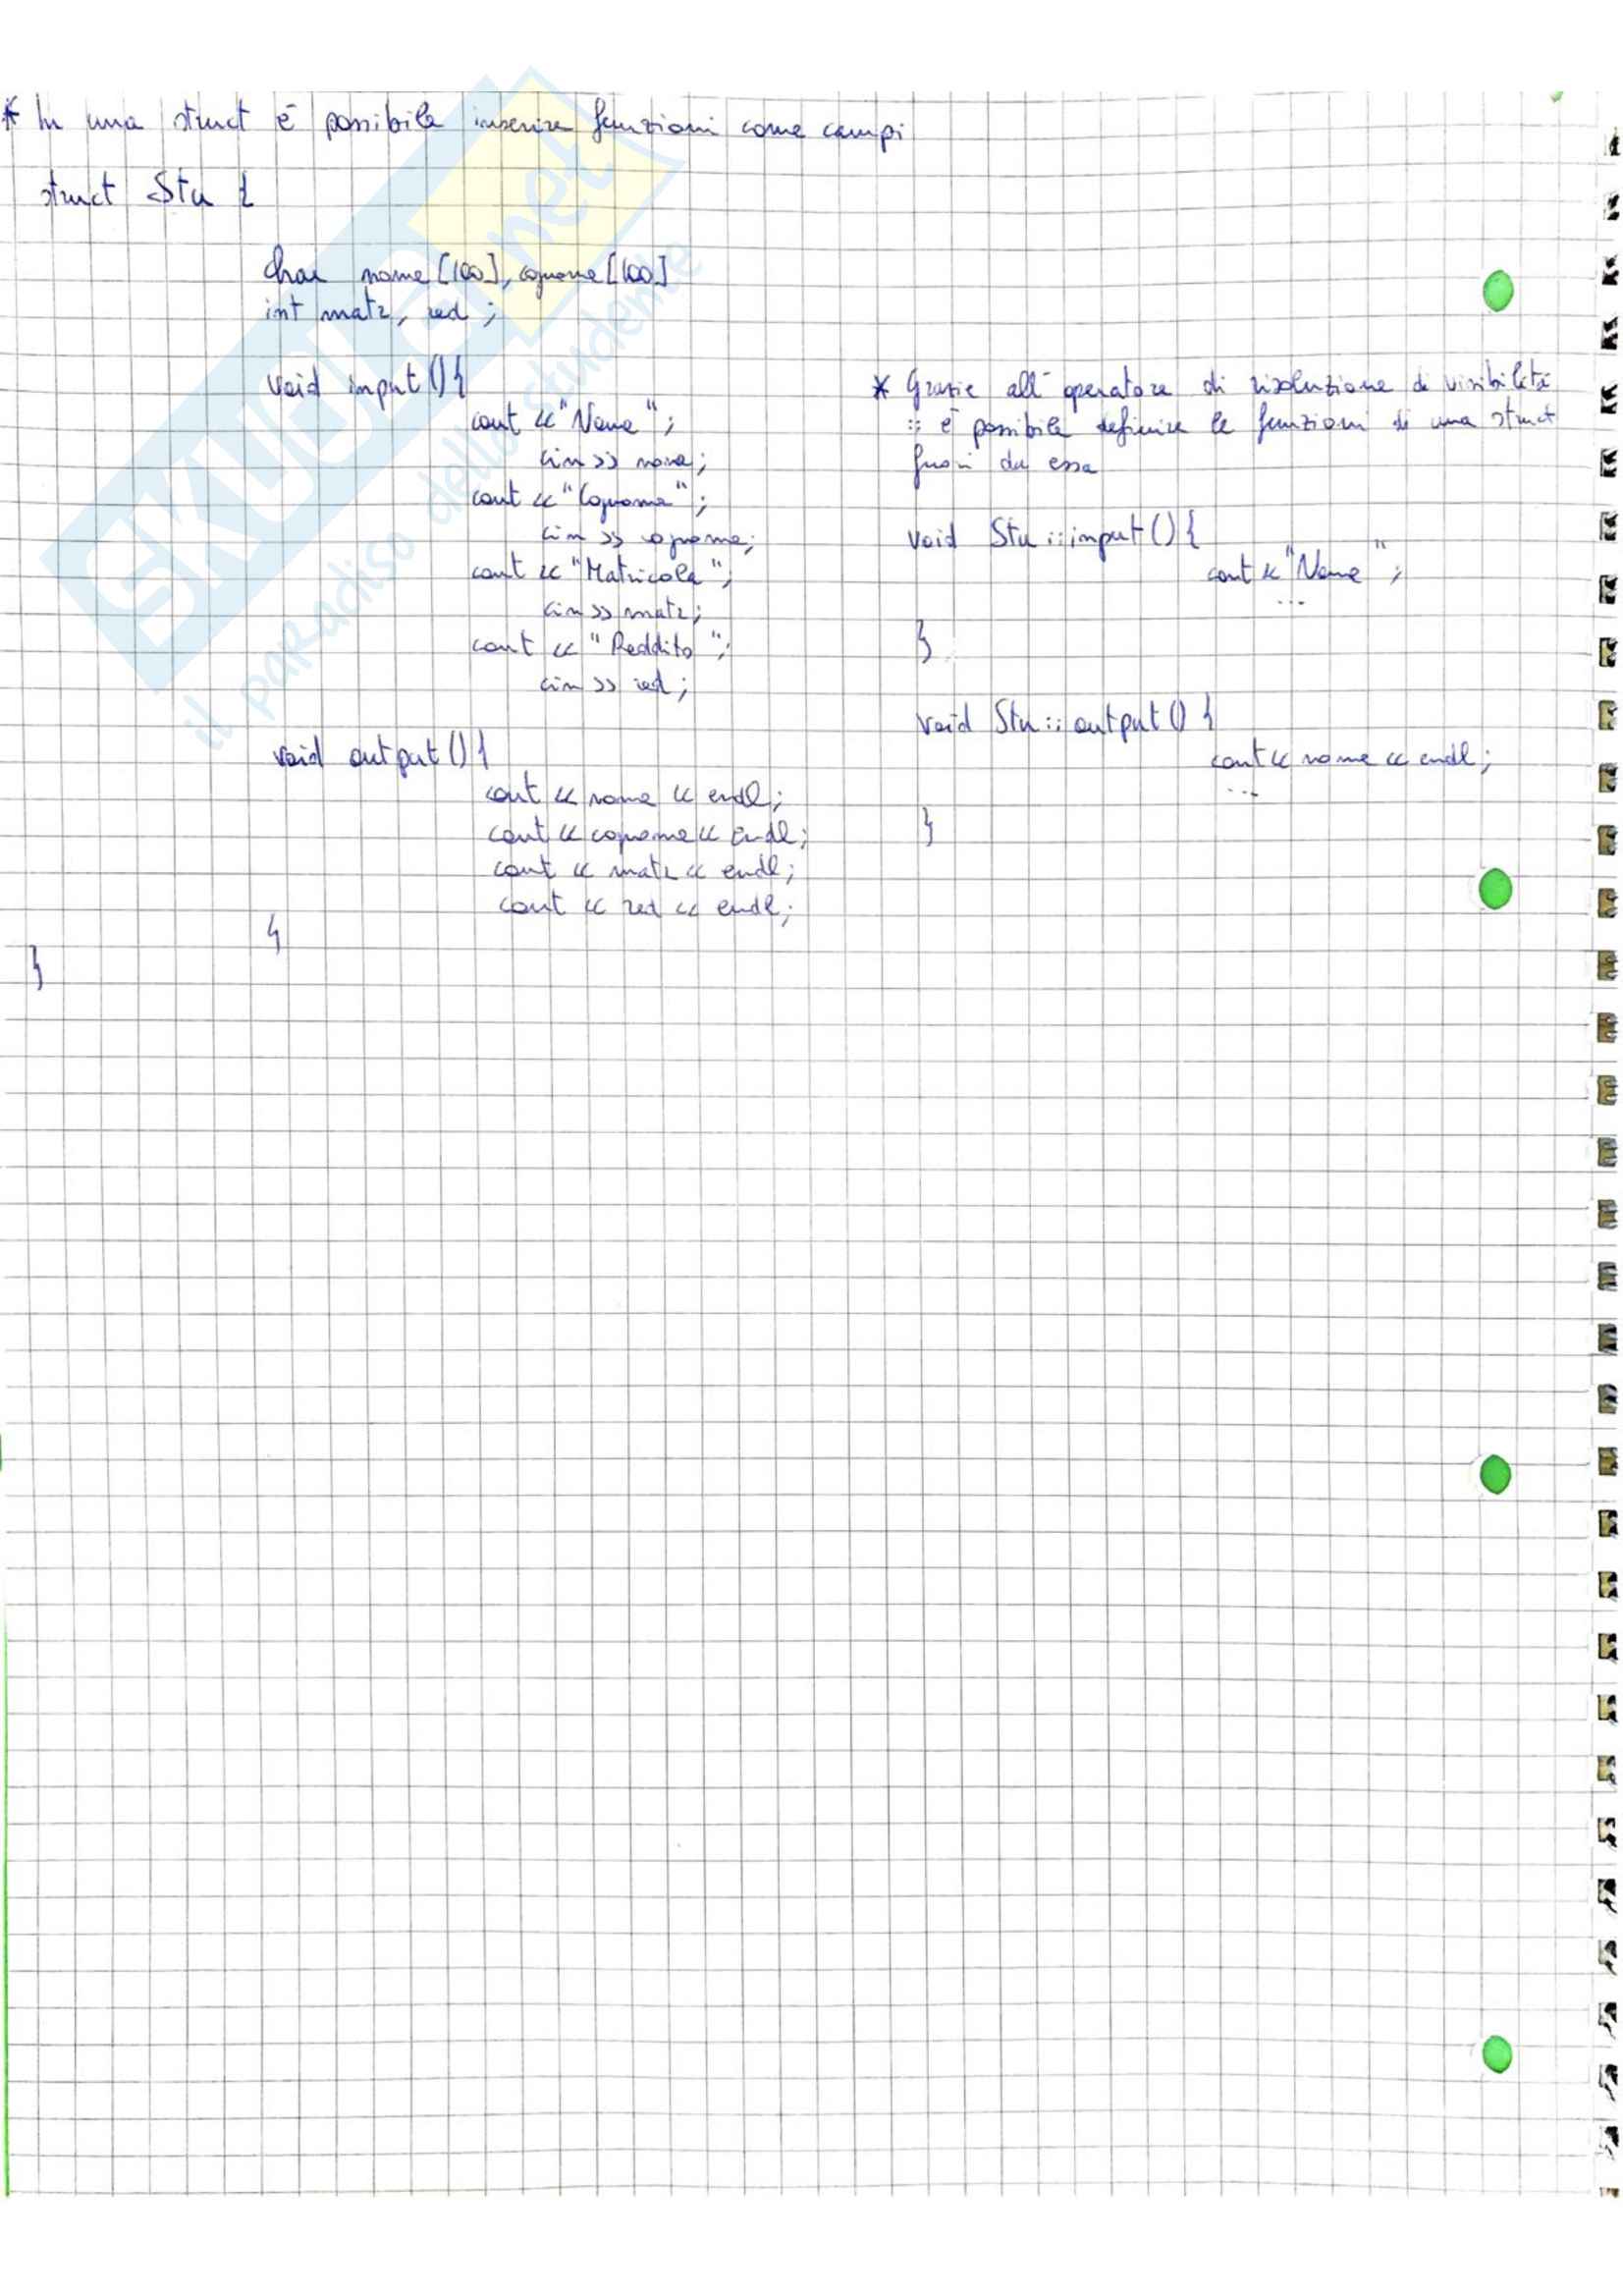 * In una struct è possibile inserire funzioni come campi
struct Stu {
char nome [100], cognome [100]
int matr, red ;
void input () {
cout << "Nome" ;
cin >> nome;
cout << "Cognome" ;
cin >> cognome;
cout << "Matricola" ;
cin >> matr;
cout << "Reddito" ;
cin >> red ;
void output () {
cout << nome << endl;
cout << cognome << endl;
cout << matr << endl;
cout << red << endl;
}
}
* Grazie all'operatore di risoluzione di visibilità
:: è possibile definire le funzioni di una struct
fuori da essa
void Stu :: input () {
cout << "Nome" ;
...
}
void Stu :: output () {
cout << nome << endl;
...
}
SKUOLA.net
il paradiso dello studente